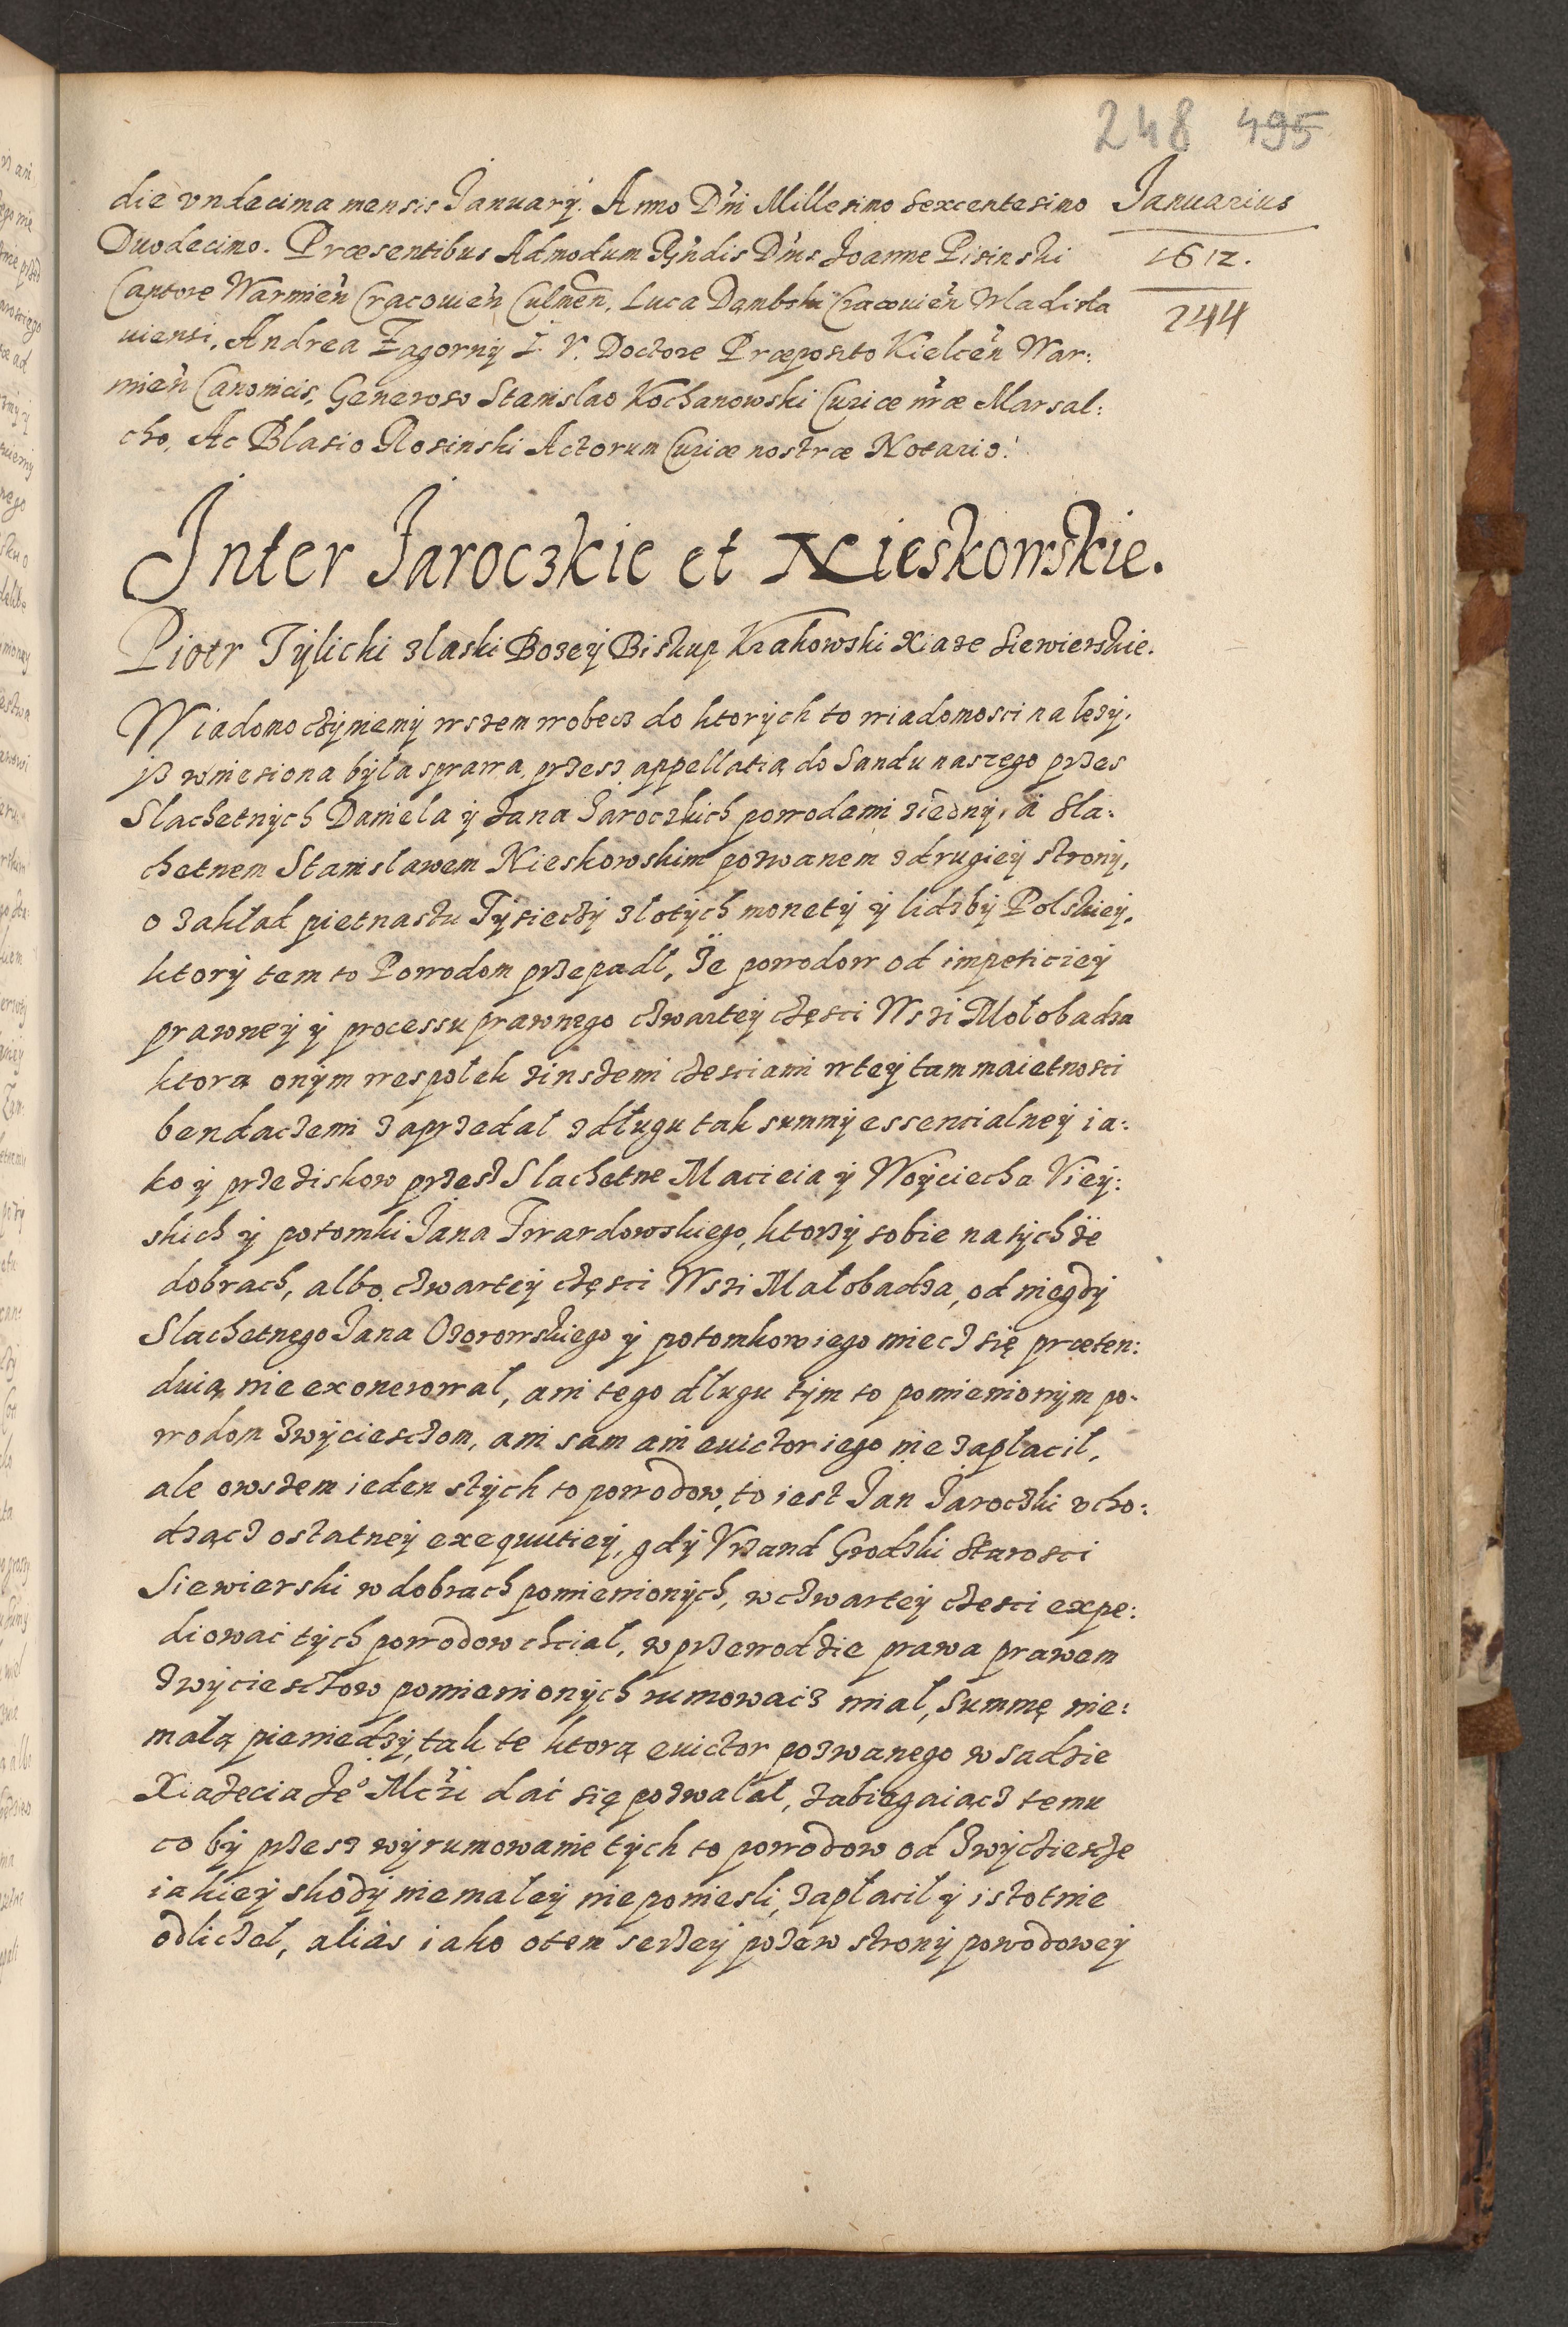 248 495
die vndecima mensis Januarij. Anno Dñi Millesimo Sexcentesimo
Januarius
Duodecimo. Præsentibus Admodum Rñdis Dñis Joanne Pisinski
1612.
Cantore Warmieñ Cracouieñ Culmeñ, Luca Dąmbski Cracouieñ Wladisla
244
uiensi, Andrea Zagorny I. V. Doctore Præposito Kielceñ War:
mieñ Canonicis, Generoso Stanislao Kochanowski Curiæ nr̃æ Marsal:
cho, Ac Blasio Rosinski Actorum Curiæ nostræ Notario.
Inter Jaroczkie et Nieskowskie.
Piotr Tylicki zlaski Bozey Biskup Krakowski Xiaze Siewierskie.
Wiadomo czyniemy wszem wobecz do ktorych to wiadomosci nalęzy,
jz wniesiona była sprawa, przesz appellatią do Sandu naszego przes
Slachetnych Daniela y Jana Jaroczkich powodami ziedny, á Sla:
chetnem Stanislawem Nieskowskim pozwanem zdrugiey strony,
o zakład pietnastu Tysieczy zlotych monety y lidzby Polskiey,
ktory tem to Powodom przepadl, Ze powodow od impeticiey
prawney y processu prawnego czwartey częsci Wsi Małobadza
ktorą onym wespołek zinszemi czesciami wtey tam maietnosci
bendaczemi zaprzedal zdługu tak summy essencialney ia:
ko y przeziskow przesz Slachetne Macieia y Woyciecha Viey:
skich y potomki Jana Twardowskiego, ktorzy sobie na tychze
dobrach, albo czwartey częsci Wsi Małobadza, od niegdy
Slachetnego Jana Ozorowskiego y potomkow iego miecz się præten:
duią nie exonerował, ani tego dlugu tym to pomienionym po:
wodom zwyciesczom, ani sam ani euictor iego nie zapłacił,
ale owszem ieden stych to powodow, to iest Jan Jaroczki vcho:
dząncz ostatney exequutiey, gdy Vrzand Grodzki Starosci
Siewierski w dobrach pomienionych, w czwartey czesci expe:
diowac tych powodow chcial, w przewodzie prawa prawem
zwyciesczow pomienionych rumowacz miał, Summę nie:
małą pieniedzy, tak te ktorą euictor pozwanego w sadzie
Xiazecia Je° Mczi dać się pozwalał, zabiegaiącz temu
co by przesz wyrumowanie tych to powodow od zwyciescze
iakiey skody niemałey nieponiesli, zapłacił y istotnie
odliczel, aliàs iako otem serzey pozew strony powodowey